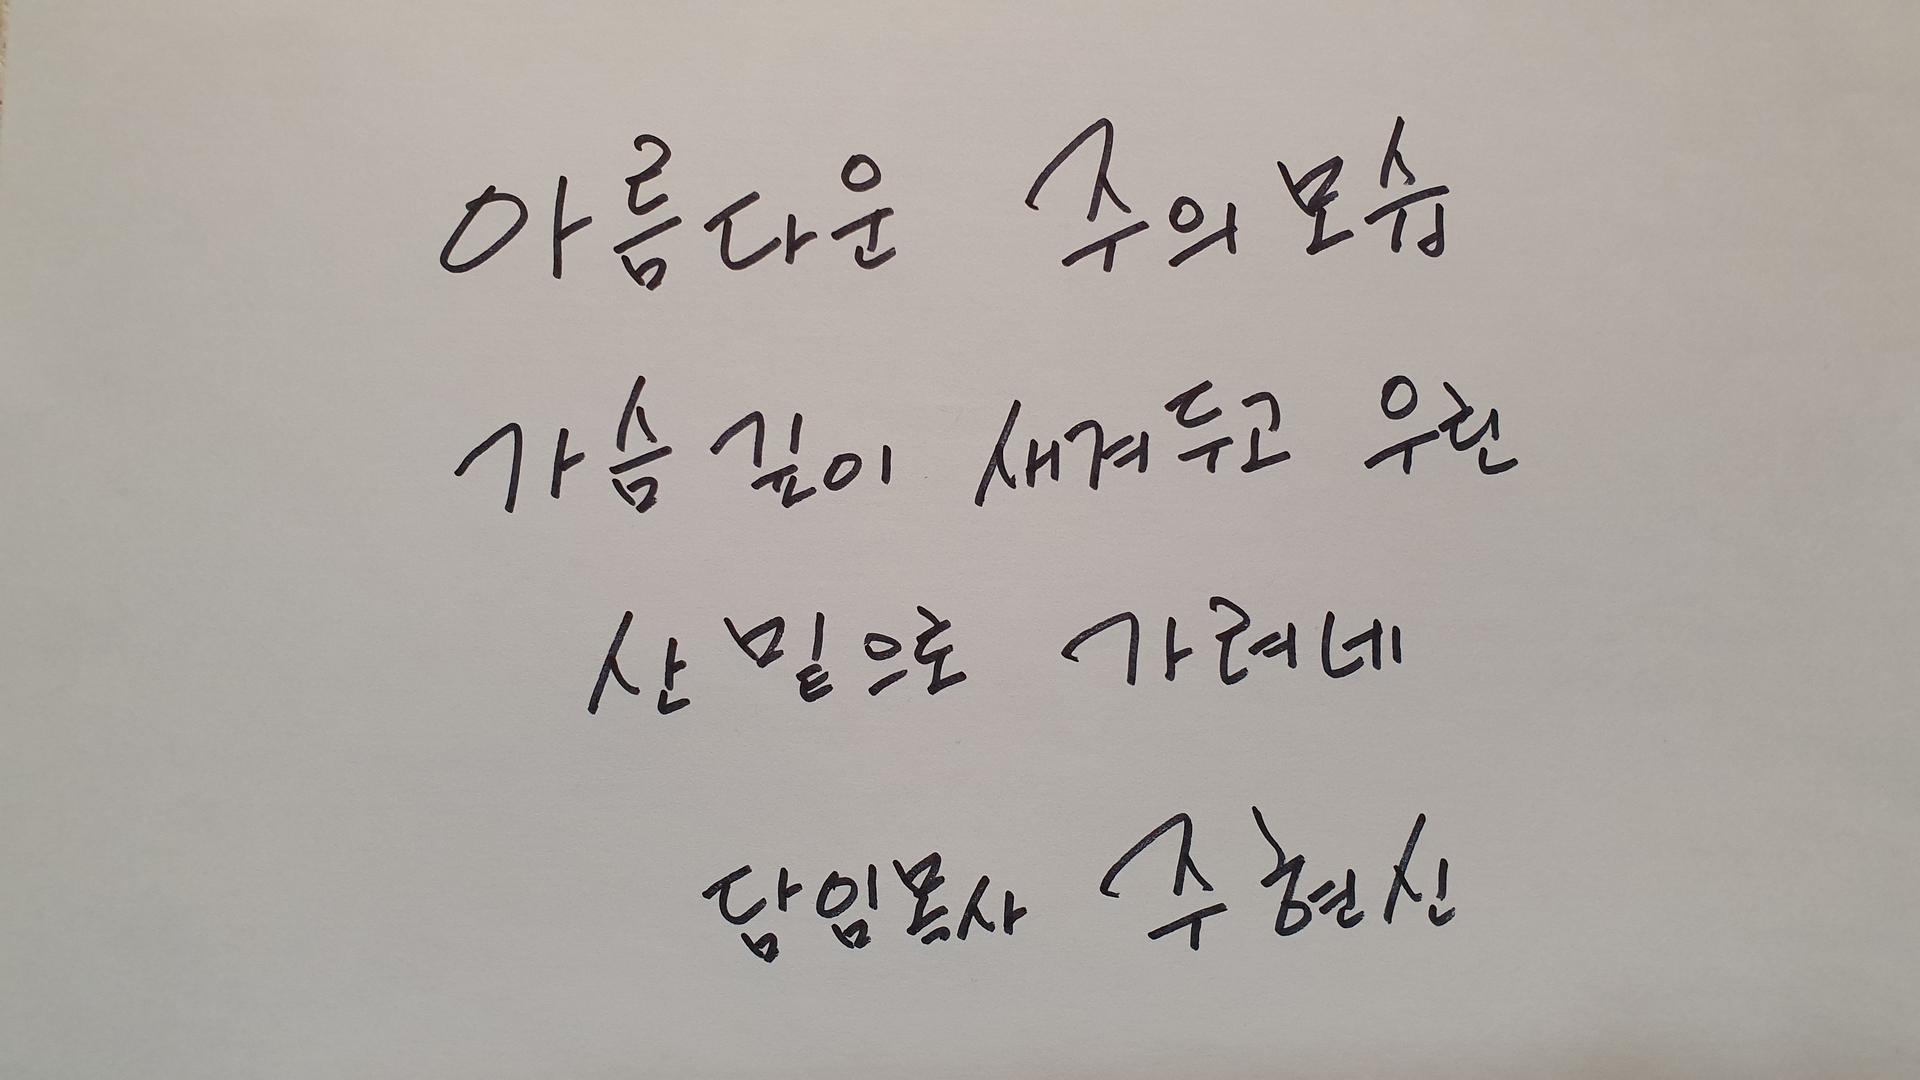 아름다운 주의 모습
가슴 깊이 새겨두고 우린
산 밑으로 가려네
담임목사 주현신